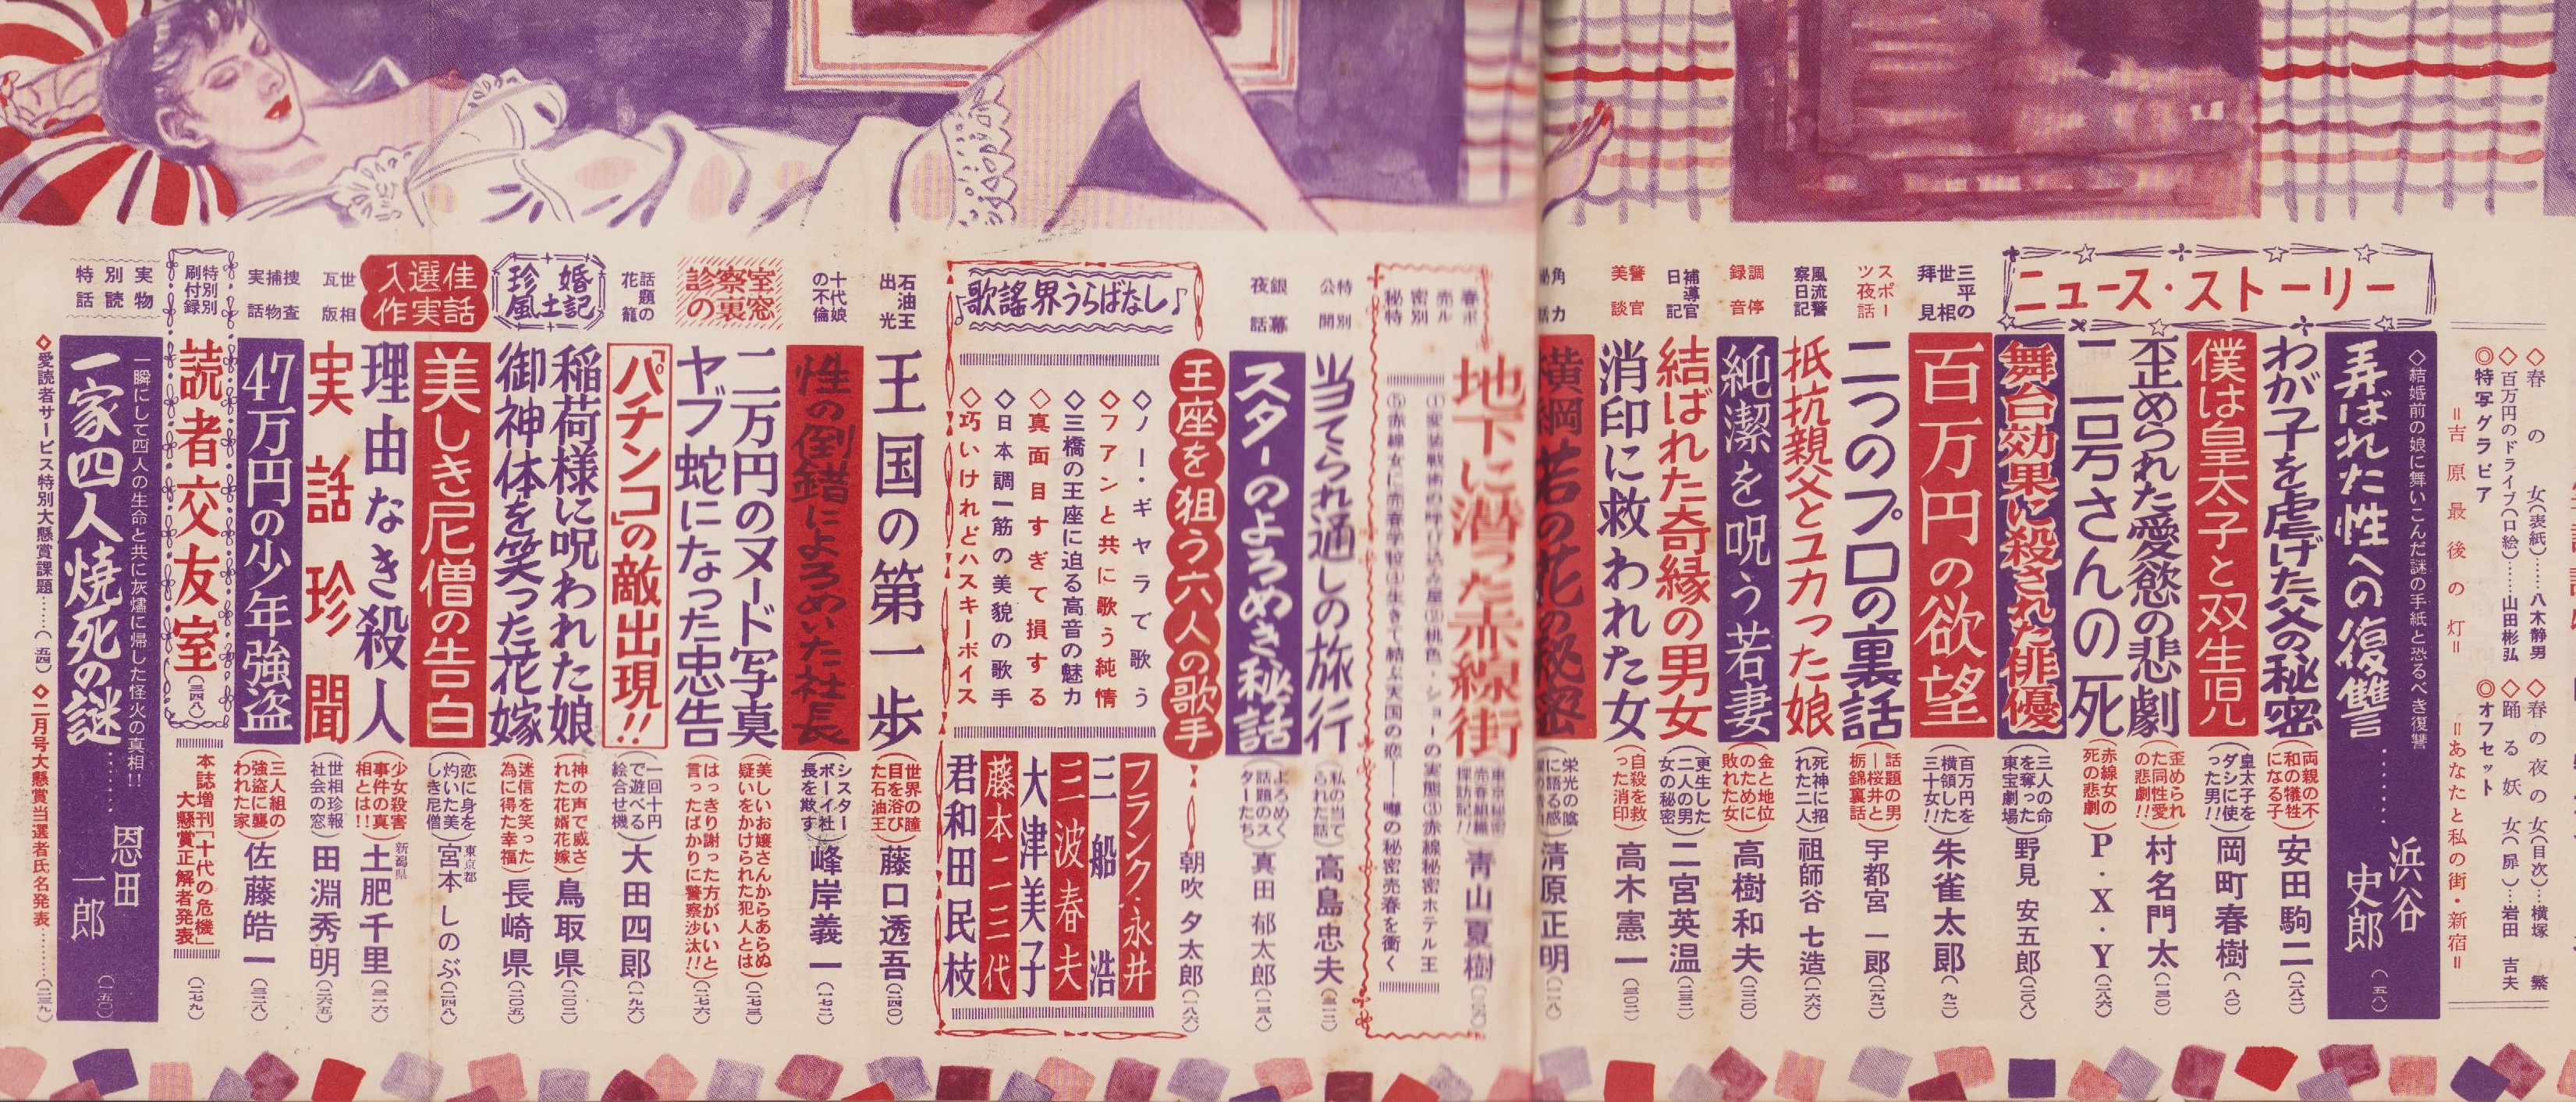 ◇春の女(表紙)……八木静男
◇百万円のドライブ(口絵)……山田彬弘
◎特写グラビア
＝吉原最後の灯＝
◇春の夜の女(目次)…横塚 繁
◇踊る妖女(扉)…岩田吉夫
◎オフセット
＝あなたと私の街・新宿＝
ニュース・ストーリー
◇結婚前の娘に舞いこんだ謎の手紙と恐るべき復讐
弄ばれた性への復讐……浜谷史郎(五八)
わが子を虐げた父の秘密(両親の不和の犠牲になる子)安田駒二
僕は皇太子と双生児(皇太子をダシに使った男!!)岡町春樹(八〇)
歪められた愛慾の悲劇(歪められた同性愛の悲劇!!)村名門太
二号さんの死(赤線女の死の悲劇)P・X・Y
舞台効果に殺された俳優(三人の命を奪った東宝劇場)野見安五郎
三平の世相拝見
百万円の欲望(百万円を横領した三十女!!)朱雀太郎
スポーツ夜話
二つのプロの裏話(話題の男―桜井と栃錦裏話)宇都宮一郎
風流警察日記
抵抗親父とユカった娘(死神に招れた二人)祖師谷七造
調停録音
純潔を呪う若妻(金と地位のために敗れた女)高樹和夫
補導官日記
結ばれた奇縁の男女(更生した二人の男女の秘密)二宮英温
警官美談
消印に救われた女(自殺を救った消印)高木憲一
横綱若の花の秘密
清原正明
地下に潜った赤線街
青山夏樹
特別公開
当てられ通しの旅行(私の当てられた話)高島忠夫
銀幕夜話
スターのよろめき秘話(よろめく話題のスターたち)真田郁太郎
歌謡界うらばなし
王座を狙う六人の歌手
朝吹夕太郎(一八六)
◇ノー・ギャラで歌う
フランク・永井
◇フアンと共に歌う純情
三船浩
◇三橋の王座に迫る高音の魅力
三波春夫
◇真面目すぎて損する
大津美子
◇日本調一筋の美貌の歌手
藤本二三代
◇巧いけれどハスキーボイス
君和田民枝
石油王出光
王国の第一歩(世界の瞳目を浴びた石油王)藤口透吾
十代娘の不倫
性の倒錯によろめいた社長(シスターボーイ社長を欺す)峰岸義一
診察室の裏窓
二万円のヌード写真(美しいお嬢さんからあらぬ疑いをかけられた犯人とは)
ヤブ蛇になった忠告(はっきり謝った方がいいと言ったばかりに警察沙汰!!)
話題の花籠
「パチンコ」の敵出現!!(一回十円で遊べる絵合せ機)大田四郎
珍婚風土記
稲荷様に呪われた娘(神の声で威された花婿花嫁)鳥取県
御神体を笑った花嫁(迷信を笑った為に得た幸福)長崎県
佳話選実入作
美しき尼僧の告白(恋に身を灼いた美しき尼僧)東京都 宮本しのぶ
理由なき殺人(少女殺害事件の真相とは!!)新潟県 土肥千里
世相瓦版
実話珍聞(世相珍報社会の窓)田淵秀明
捜査捕物実話
47万円の少年強盗(三人組の強盗に襲われた家)佐藤皓一
特別別刷付録
読者交友室
本誌増刊「十代の危機」大懸賞正解者発表
実物別読特話
一瞬にして四人の生命と共に灰燼に帰した怪火の真相!!
一家四人焼死の謎……恩田一郎(一五〇)
◇愛読者サービス特別大懸賞課題……(五四)
◇二月号大懸賞当選者氏名発表